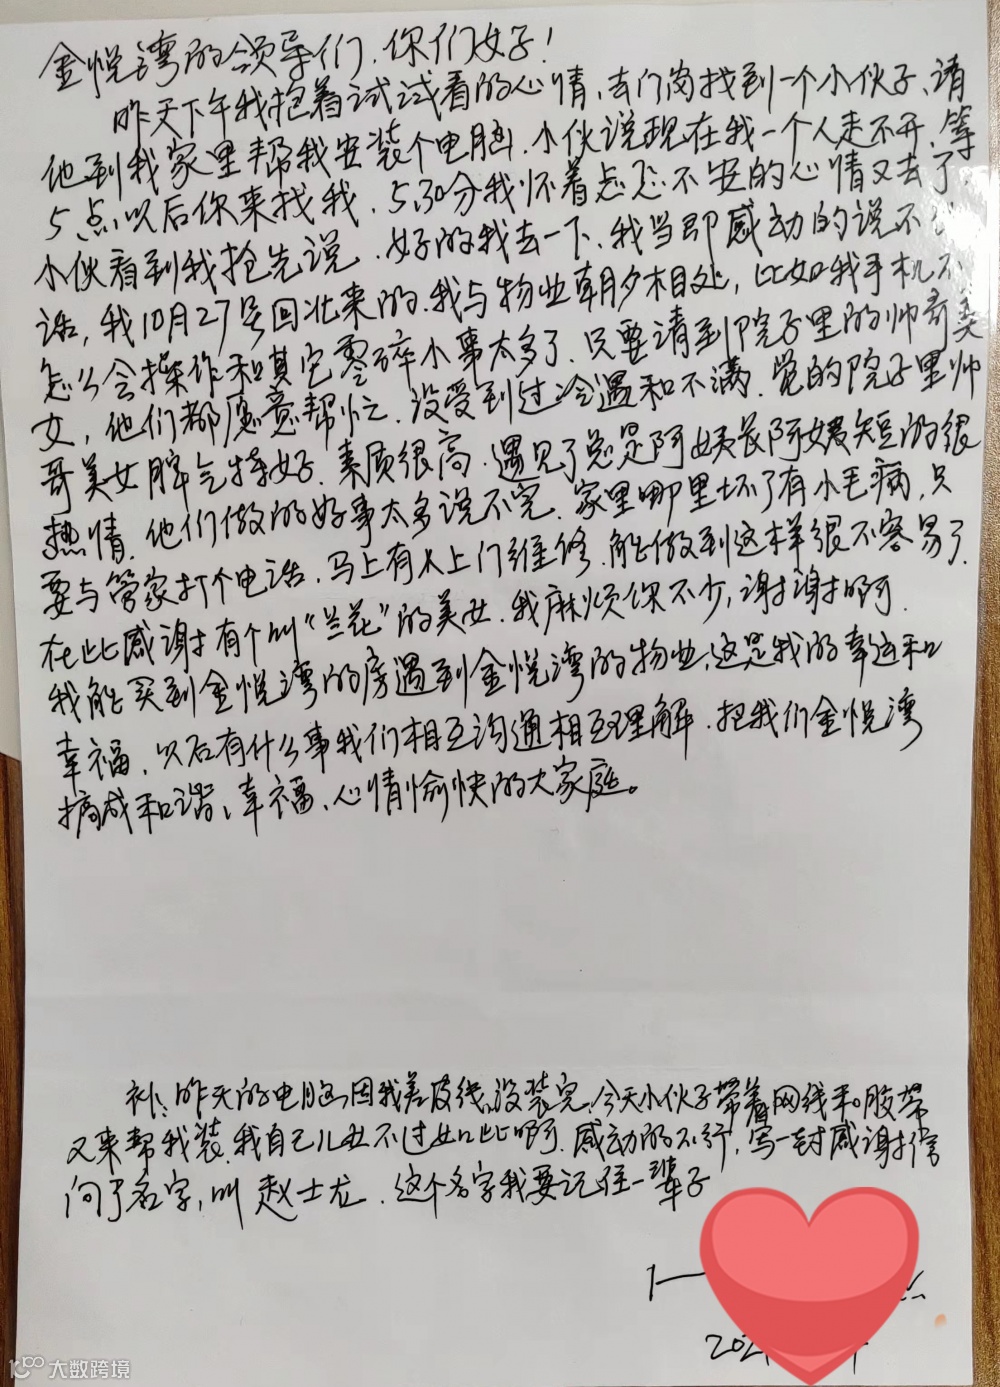 金悦湾的领导们.你们好!
昨天下午我抱着试试看的心情、去门岗找到一个小伙子、请
他到我家里帮我安装个电脑.小伙说现在我一个人走不开.等
5点以后你来找我.5.30分我怀着忐忑不安的心情又去了,
小伙看到我抢先说.好的我去一下、我当即感动的说不
话,我10月27号回北来的.我与物业朝夕相处,比如我手机不
怎么会操作和其它零碎小事太多了.只要请到院子里的帅哥美
女,他们都愿意帮忙.没受到过冷遇和不满.觉的院子里帅
哥美女脾气特好.素质很高.遇见了总是阿姨长阿姨短的很
热情.他们做的好事太多说不完.家里哪里坏了有小毛病,只
要与管家打个电话.马上有人上门维修.能做到这样很不容易了.
在此感谢有个叫“兰花”的美女.我麻烦你不少,谢谢啊.
我能买到金悦湾的房遇到金悦湾的物业,这是我的幸运和
幸福.以后有什么事我们相互沟通相互理解.把我们金悦湾
搞成和谐、幸福、心情愉快的大家庭。
补:昨天的电脑因我差皮线,没装完.今天小伙子带着网线和胶带
又来帮我装.我自己儿女不过如此啊.感动的不行,写一封感谢信
问了名字,叫赵士龙.这个名字我要记住一辈子
202
大数跨境